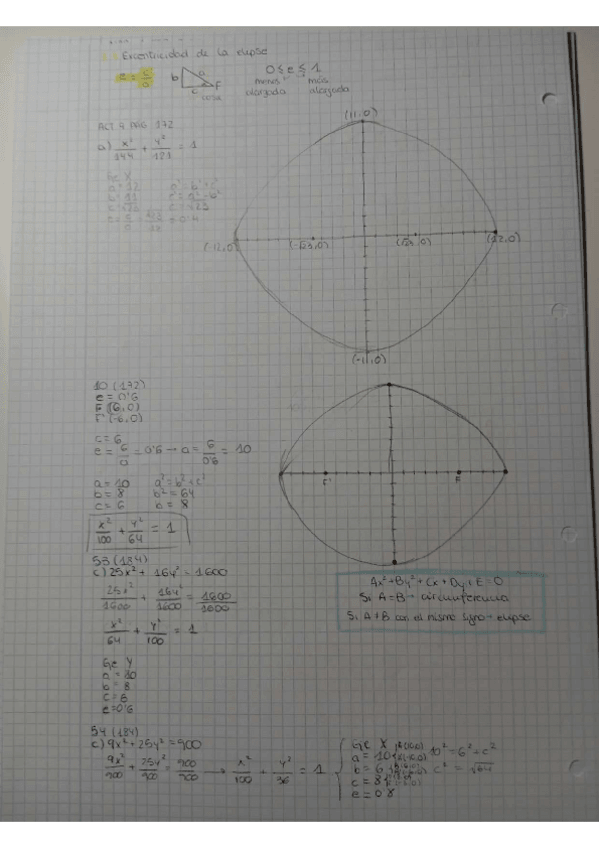 Excentricidad de la elipse
e = c/a b a c F 0 ≤ e ≤ 1
menos más
alargada alargada
ACT 9 PAG 172
a) x²/144 + y²/121 = 1
Eje X
a = 12 a² = b² + c²
b = 11 c² = a² - b²
c = √23 c = √23
(11,0)
(-12,0) (-√23,0) (√23,0) (12,0)
(-11,0)
10 (172)
e = 0'6
F (6,0)
F' (-6,0)
c = 6
e = 6/a = 0'6 → a = 6/0'6 = 10
a = 10 a² = b² + c²
b = 8 b² = 64
c = 6 b = 8
F' F
x²/100 + y²/64 = 1
53 (184)
c) 25x² + 16y² = 1600
25x²/1600 + 16y²/1600 = 1600/1600
x²/64 + y²/100 = 1
Ax² + By² + Cx + Dy + E = 0
Si A = B → circunferencia
Si A ≠ B con el mismo signo → elipse
Eje Y
a = 10
b = 8
c = 6
e = 0'6
54 (184)
c) 9x² + 25y² = 900
9x²/900 + 25y²/900 = 900/900 → x²/100 + y²/36 = 1
Eje X
a = 10 10² = 6² + c²
b = 6 c² = √64
c = 8
e = 0'8